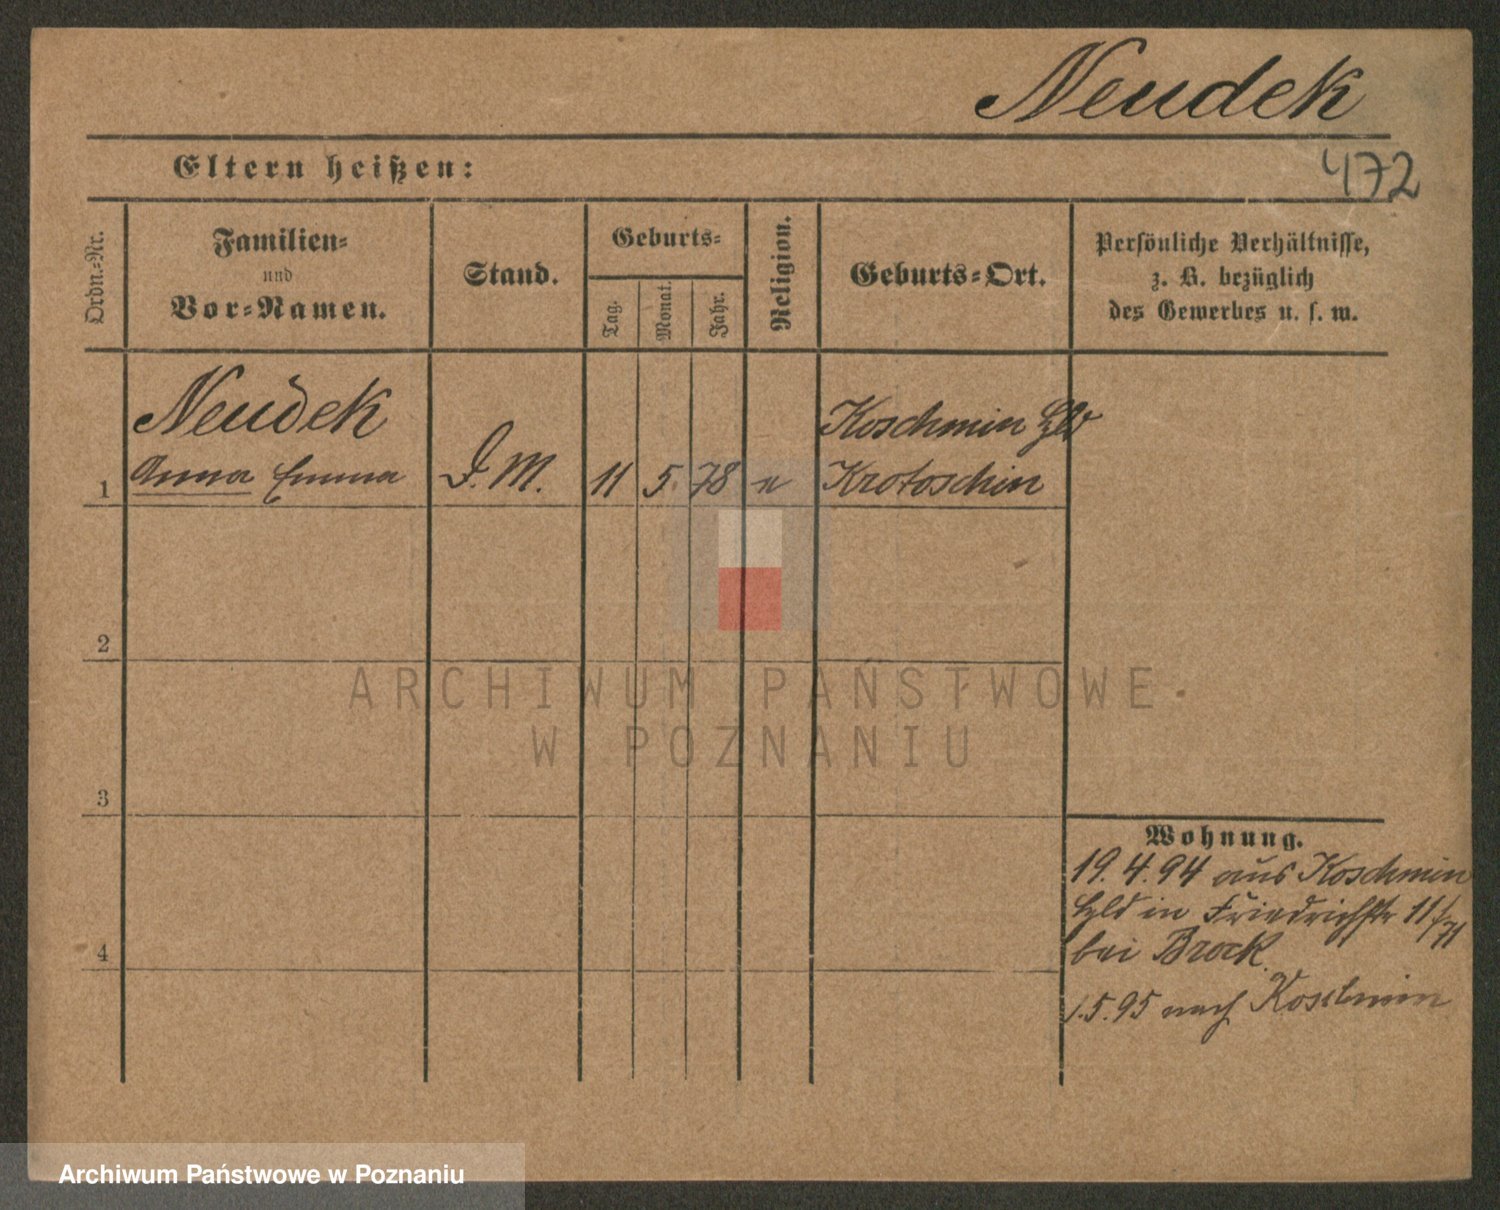 Neudek
Eltern heißen:
472
Ordn.-Nr.
Familien-
und
Vor-Namen.
Stand.
Geburts-
Tag.
Monat.
Jahr.
Religion.
Geburts-Ort.
Persönliche Verhältnisse,
z. B. bezüglich
des Gewerbes u. s. w.
Neudek
Koschmin
1 Anna Emma D. M. 11 5. 78 Krotoschin
2
ARCHIWUM PAŃSTWOWE
W POZNANIU
3
Wohnung.
19. 4. 94 aus Koschmin
in Friedrichstr 11/71
4
bei Brock.
1. 5. 95 nach Koschmin
Archiwum Państwowe w Poznaniu